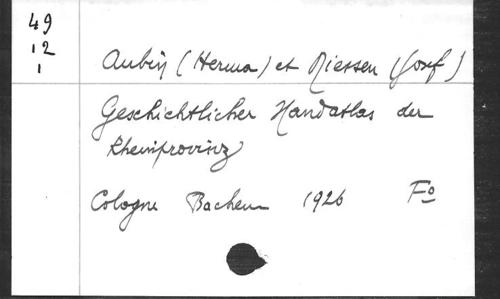 49
12
1
Aubin (Herma) et Niessen (Josef)
Geschichtlicher Handatlas der
Rheinprovinz
Cologne Bachem 1926 Fo